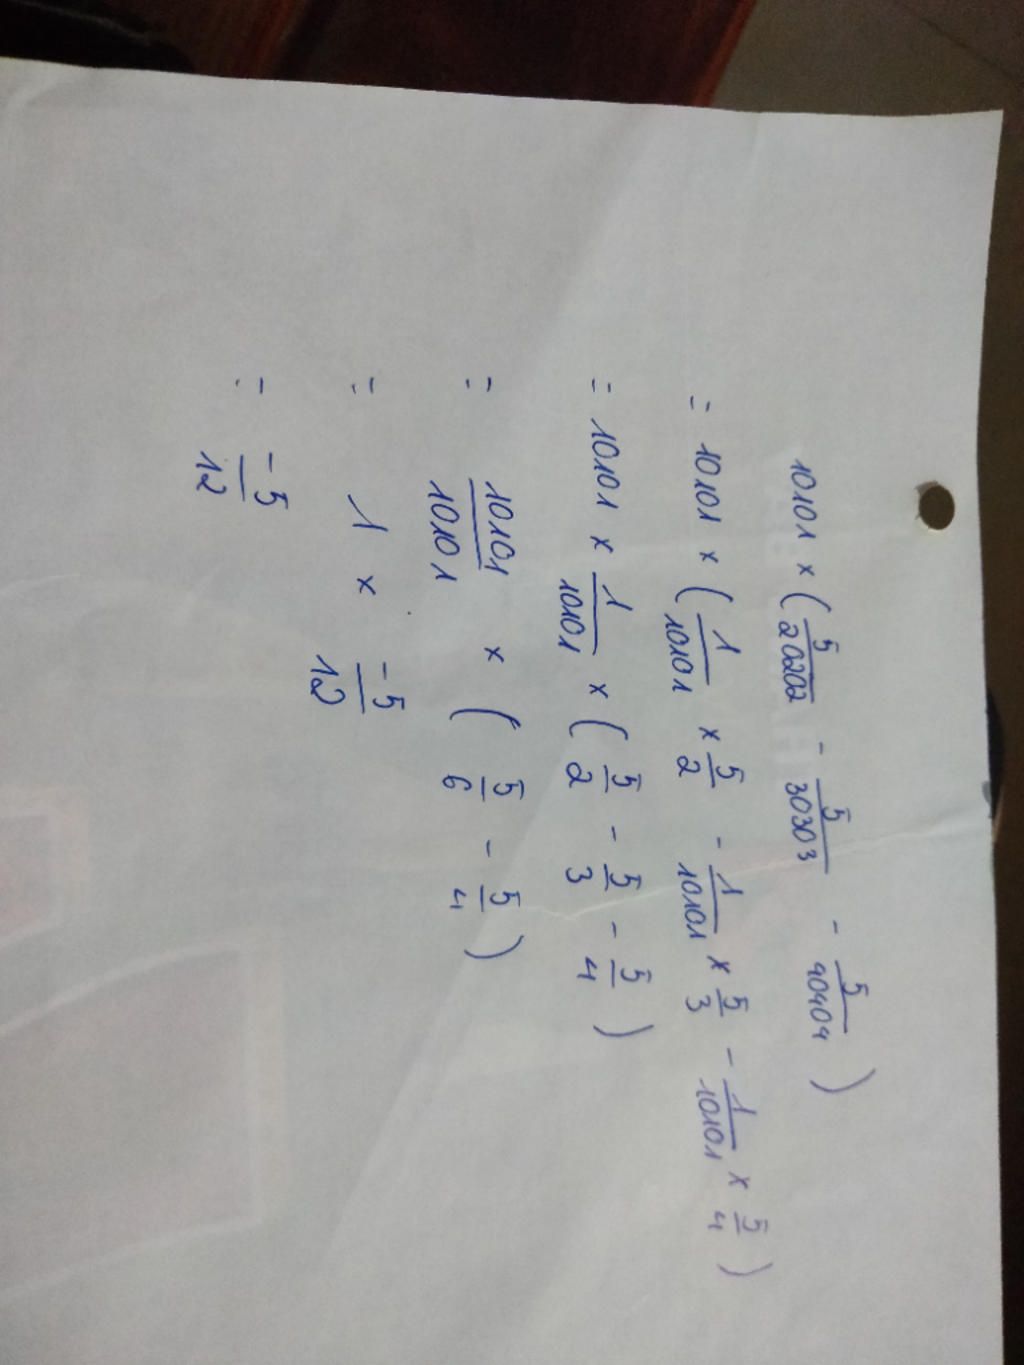 10101 × ( 5/20202 - 5/30303 - 5/40404 )
= 10101 × ( 1/10101 × 5/2 - 1/10101 × 5/3 - 1/10101 × 5/4 )
= 10101 × 1/10101 × ( 5/2 - 5/3 - 5/4 )
= 10101/10101 × ( 5/6 - 5/4 )
= 1 × -5/12
= -5/12